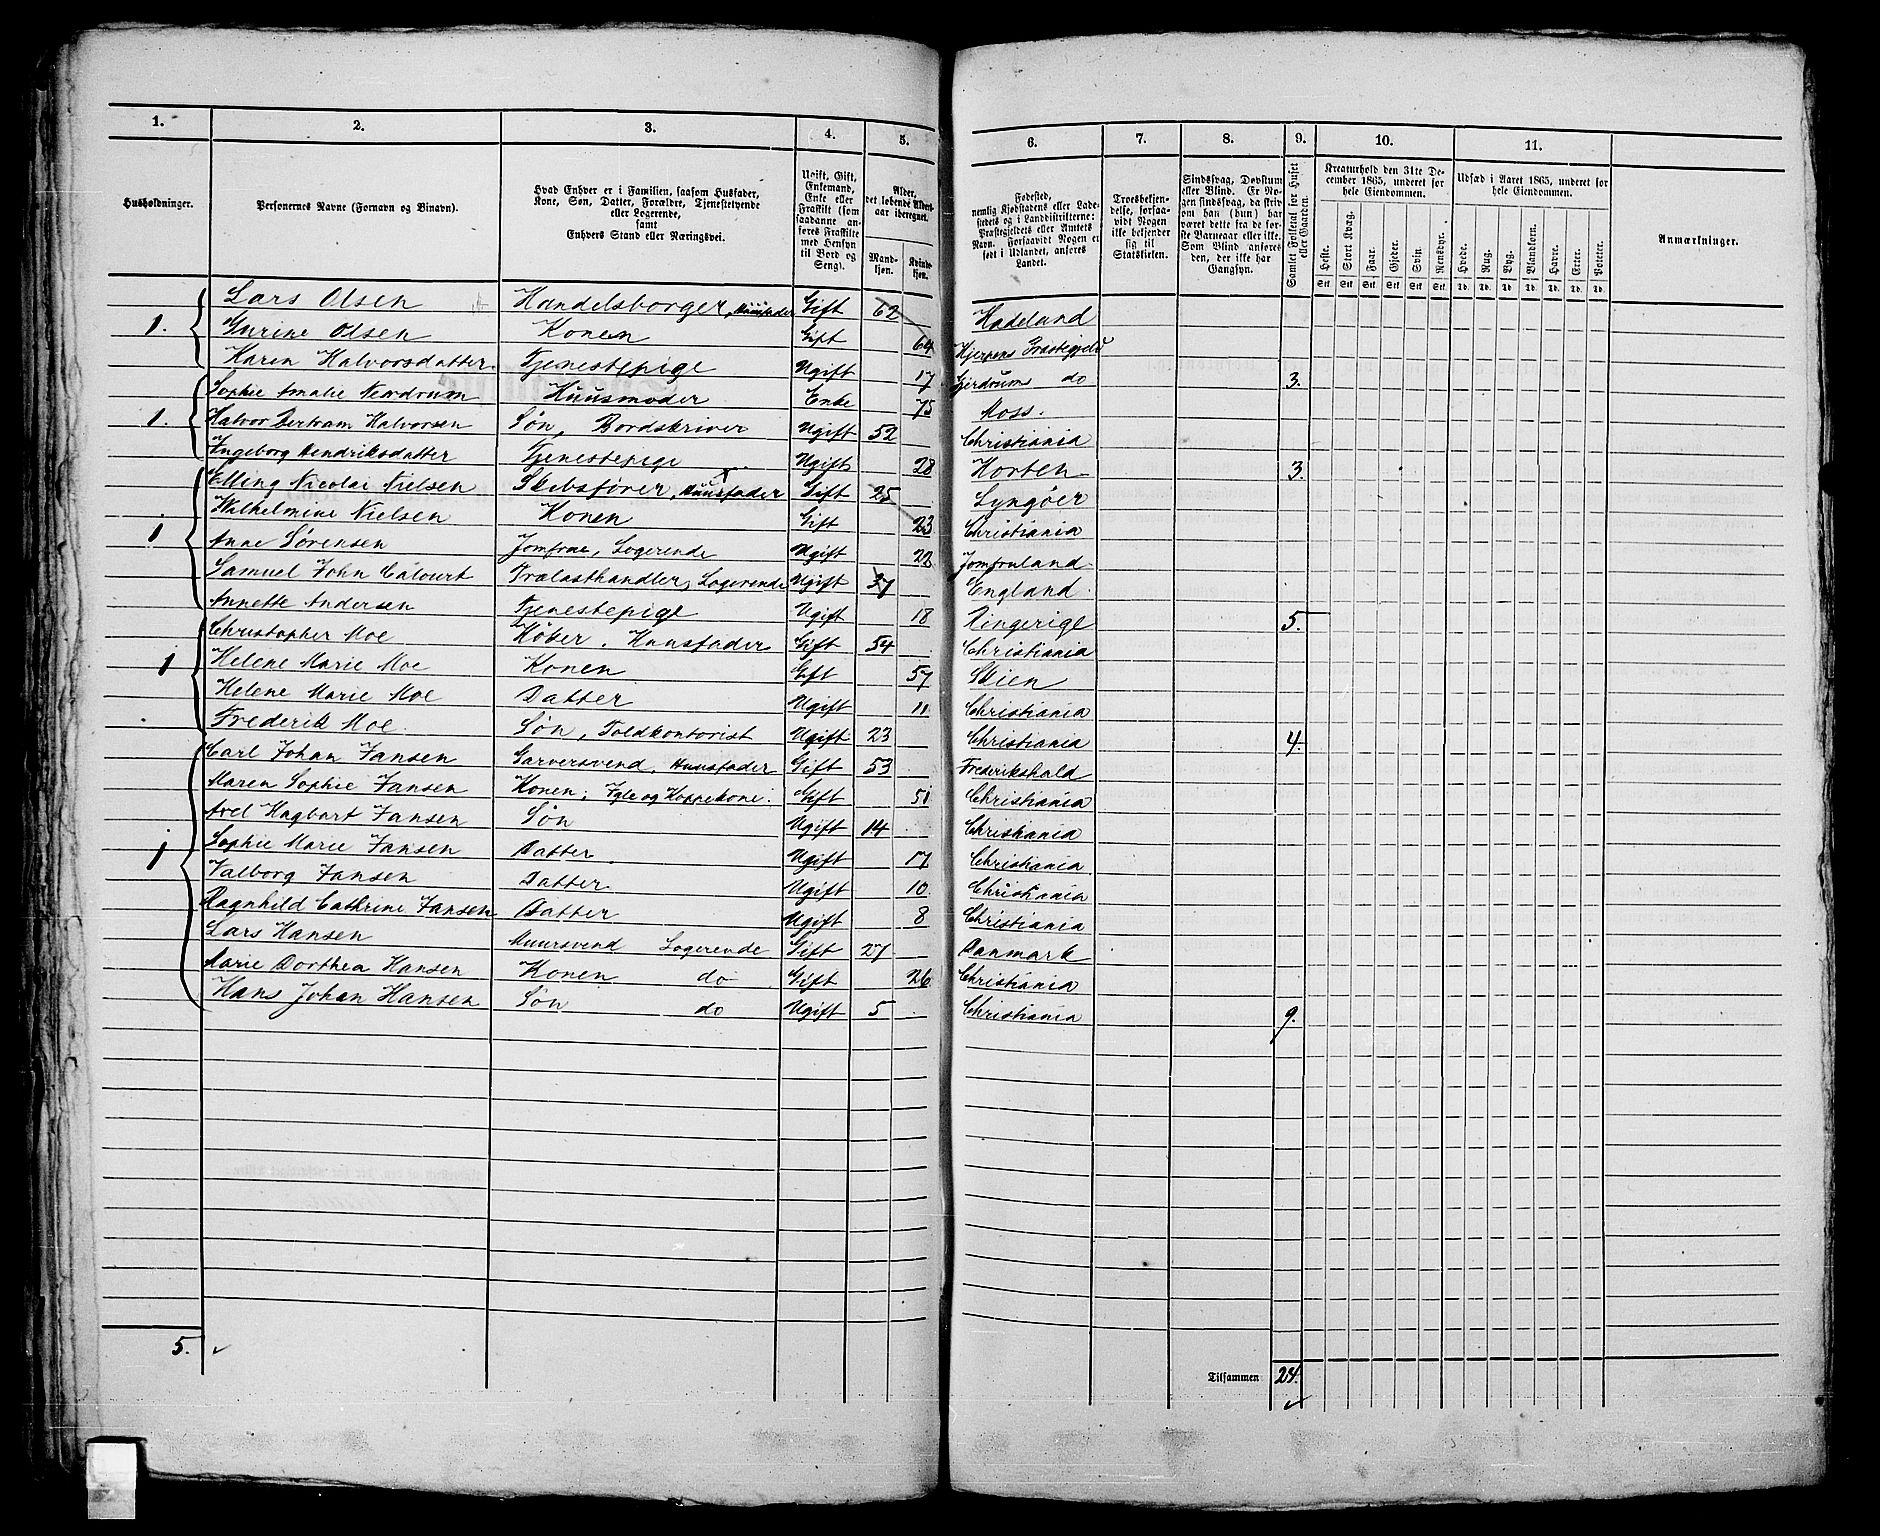 1. 2. 3. 4. 5. 6. 7. 8. 9. 10. 11.
Husholdninger.
Personernes Navne (Fornavn og Binavn).
Hvad Enhver er i Familien, saasom Husfader,
Kone, Søn, Datter, Forældre, Tjenestetyende
eller Logerende,
samt
Enhvers Stand eller Næringsvei.
Ugift, Gift,
Enkemand,
Enke eller
Fraskilt (som
saadanne an-
føres Fraskilte
med Hensyn
til Bord og
Seng).
Alder,
det løbende Alders-
aar iberegnet.
Mand-
kjøn.
Kvinde-
kjøn.
Fødested,
nemlig Kjøbstadens eller Lade-
stedets og i Landdistrikterne:
Præstegjeldets eller Amtets
Navn. Forsaavidt Nogen er
født i Udlandet, anføres
Landet.
Troesbekjen-
delse, forsaa-
vidt Nogen
ikke bekjender
sig til
Statskirken.
Sindssvag, Døvstum
eller Blind. Er No-
gen sindssvag, da skriv
om han (hun) har
været dette fra de før-
ste Barneaar eller ikke.
Som Blind anføres
den, der ikke har
Gangsyn.
Samlet Folketal for Huset
eller Gaarden.
Kreaturhold den 31te De-
cember 1865, underet for
hele Eiendommen.
Heste. Stort Kvæg. Faar. Gjeder. Svin. Rensdyr.
Stk. Stk. Stk. Stk. Stk. Stk.
Udsæd i Aaret 1865, underet for
hele Eiendommen.
Hvede. Rug. Byg. Blandkorn. Havre. Erter. Poteter.
Td. Td. Td. Td. Td. Td. Td.
Anmærkninger.
Lars Olsen Handelsborger, Huusfader Gift 62 Hadeland
1. Gurine Olsen Konen Gift 64 Gjerpens Præstegjeld
Karen Halvorsdatter Tjenestepige Ugift 17 Gjerdrum do 3.
Sophie Amalie Neardrum Huusmoder Enke 75 Moss.
1. Halvor Bertram Halvorsen Søn, Bordskriver Ugift 52 Christiania
Ingeborg Hendriksdatter Tjenestepige Ugift 28 Horten 3.
Elling Nicolai Nielsen Skibsfører, Huusfader Gift 25 Lyngöer
Wilhelmine Nielsen Konen Gift 23 Christiania
1 Anne Sørensen Jomfrue, Logerende Ugift 22 Jomfruland
Samuel John Calvurt Trælasthandler, Logerende Ugift 37 England
Annette Andersen Tjenestepige Ugift 18 Ringerige 5.
Christopher Moe Køber. Huusfader Gift 54 Christiania
1 Helene Marie Moe Konen Gift 57 Skien
Helene Marie Moe Datter Ugift 11 Christiania
Frederik Moe. Søn, Toldkontorist Ugift 23 Christiania 4.
Carl Johan Jansen Garversvend, Huusfader Gift 53 Frederikshald
Maren Sophie Jansen Konen, Igle og Koppekone. Gift 51 Christiania
Axel Hagbart Jansen Søn Ugift 14 Christiania
1 Sophie Marie Jansen Datter Ugift 17 Christiania
Valborg Jansen Datter Ugift 10. Christiania
Ragnhild Cathrine Jansen Datter Ugift 8 Christiania
Lars Hansen Muursvend Logerende Gift 27 Danmark
Marie Dorthea Hansen Konen do Gift 26 Christiania
Hans Johan Hansen Søn do Ugift 5 Christiania 9.
5.
Tilsammen 24.